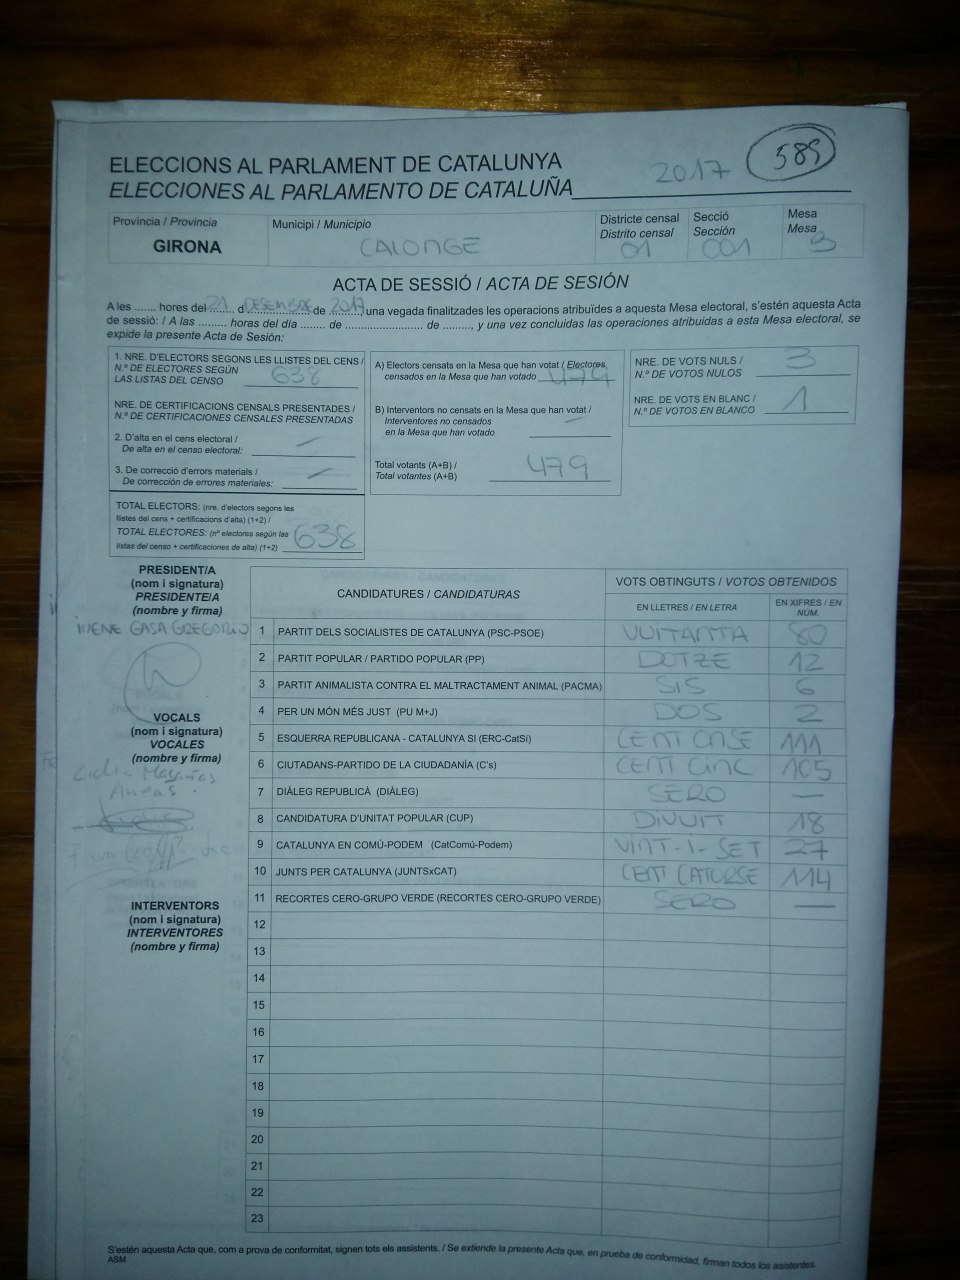 ELECCIONS AL PARLAMENT DE CATALUNYA
ELECCIONES AL PARLAMENTO DE CATALUÑA
2017
589
Província / Provincia
GIRONA
Municipi / Municipio
CALONGE
Districte censal
Distrito censal
01
Secció
Sección
001
Mesa
Mesa
B
ACTA DE SESSIÓ / ACTA DE SESIÓN
A les ....... hores del 21 d DESEMBRE de 2017, una vegada finalitzades les operacions atribuïdes a aquesta Mesa electoral, s'estén aquesta Acta
de sessió: / A las ......... horas del día ....... de ........................ de ........., y una vez concluidas las operaciones atribuidas a esta Mesa electoral, se
expide la presente Acta de Sesión:
1. NRE. D'ELECTORS SEGONS LES LLISTES DEL CENS /
N.º DE ELECTORES SEGÚN
LAS LISTAS DEL CENSO
638
NRE. DE CERTIFICACIONS CENSALS PRESENTADES /
N.º DE CERTIFICACIONES CENSALES PRESENTADAS
2. D'alta en el cens electoral /
De alta en el censo electoral: —
3. De correcció d'errors materials /
De corrección de errores materiales: —
TOTAL ELECTORS: (nre. d'electors segons les
llistes del cens + certificacions d'alta) (1+2) /
TOTAL ELECTORES: (nº electores según las
listas del censo + certificaciones de alta) (1+2)
638
A) Electors censats en la Mesa que han votat / Electores
censados en la Mesa que han votado 479
B) Interventors no censats en la Mesa que han votat /
Interventores no censados
en la Mesa que han votado —
Total votants (A+B) /
Total votantes (A+B)
479
NRE. DE VOTS NULS /
N.º DE VOTOS NULOS
3
NRE. DE VOTS EN BLANC /
N.º DE VOTOS EN BLANCO
1
PRESIDENT/A
(nom i signatura)
PRESIDENTE/A
(nombre y firma)
IRENE GASA GREGORIO
VOCALS
(nom i signatura)
VOCALES
(nombre y firma)
Lidia
INTERVENTORS
(nom i signatura)
INTERVENTORES
(nombre y firma)
CANDIDATURES / CANDIDATURAS
VOTS OBTINGUTS / VOTOS OBTENIDOS
EN LLETRES / EN LETRA
EN XIFRES / EN NÚM.
1 PARTIT DELS SOCIALISTES DE CATALUNYA (PSC-PSOE) VUITANTA 80
2 PARTIT POPULAR / PARTIDO POPULAR (PP) DOTZE 12
3 PARTIT ANIMALISTA CONTRA EL MALTRACTAMENT ANIMAL (PACMA) SIS 6
4 PER UN MÓN MÉS JUST (PU M+J) DOS 2
5 ESQUERRA REPUBLICANA - CATALUNYA SI (ERC-CatSí) CENT ONSE 111
6 CIUTADANS-PARTIDO DE LA CIUDADANÍA (C's) CENT CINC 105
7 DIÀLEG REPUBLICÀ (DIÀLEG) SERO —
8 CANDIDATURA D'UNITAT POPULAR (CUP) DIVUIT 18
9 CATALUNYA EN COMÚ-PODEM (CatComú-Podem) VINT-I-SET 27
10 JUNTS PER CATALUNYA (JUNTSxCAT) CENT CATORSE 114
11 RECORTES CERO-GRUPO VERDE (RECORTES CERO-GRUPO VERDE) SERO —
12
13
14
15
16
17
18
19
20
21
22
23
S'estén aquesta Acta que, com a prova de conformitat, signen tots els assistents. / Se extiende la presente Acta que, en prueba de conformidad, firman todos los asistentes.
ASM